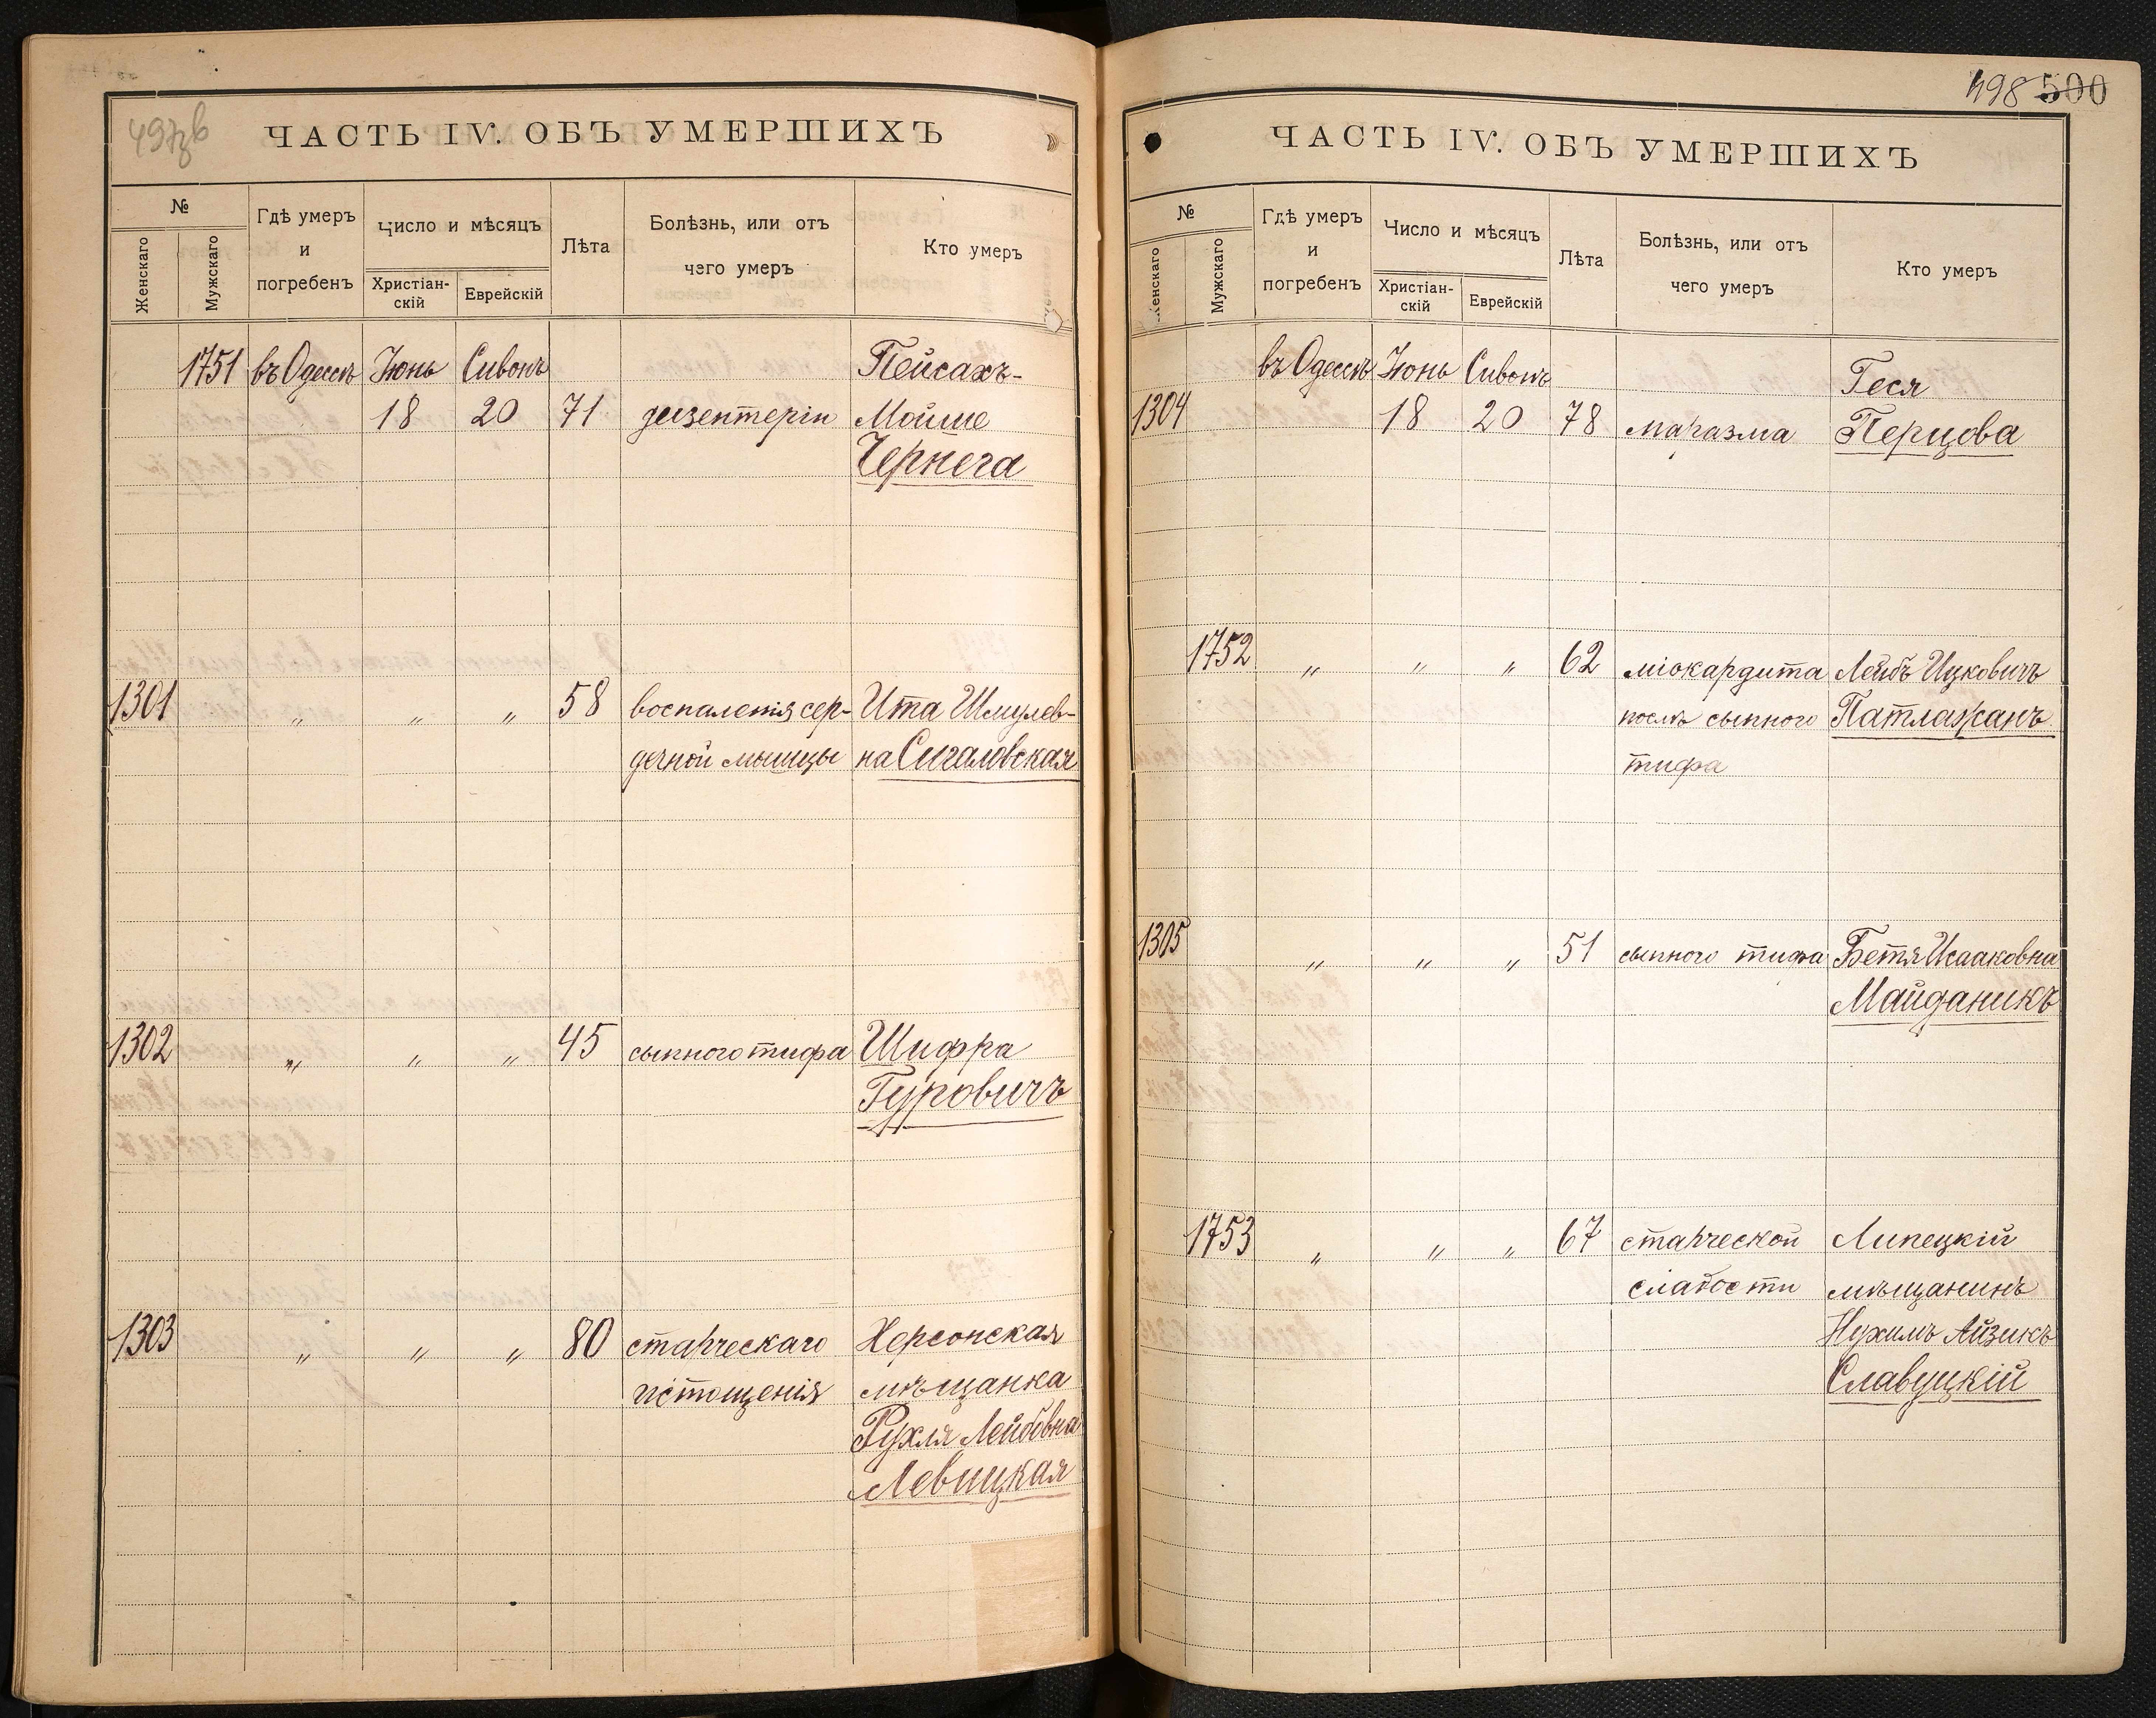 ЧАСТЬ IV. ОБЪ УМЕРШИХЪ
№
Женскаго
Мужскаго
Гдѣ умеръ
и
погребенъ
Число и мѣсяцъ
Христіан-
скій
Еврейскій
Лѣта
Болѣзнь, или отъ
чего умеръ
Кто умеръ
1751 въ Одессѣ Іюнь Сивонъ Пейсахъ-
18 20 71 дизентеріи Мойше
Чернега
1301 " " " 58 воспаленія сер- Ита Шмулев-
дечной мышцы на Сигаловская
1302 " " " 45 сыпного тифа Шифра
Гуровичъ
1303 " " " 80 старческаго Херсонская
истощенія мѣщанка
Рухля Лейбовна
Левицкая
498 500
ЧАСТЬ IV. ОБЪ УМЕРШИХЪ
№
Женскаго
Мужскаго
Гдѣ умеръ
и
погребенъ
Число и мѣсяцъ
Христіан-
скій
Еврейскій
Лѣта
Болѣзнь, или отъ
чего умеръ
Кто умеръ
въ Одессѣ Іюнь Сивонъ Геся
1304 18 20 78 маразма Перцова
1752 " " " 62 міокардита Лейбъ Ицковичъ
послѣ сыпного Патлажанъ
тифа
1305 " " " 51 сыпного тифа Бетя Исааковна
Майданикъ
1753 " " " 67 старческой Липецкій
слабости мѣщанинъ
Нухимъ Айзикъ
Славуцкій